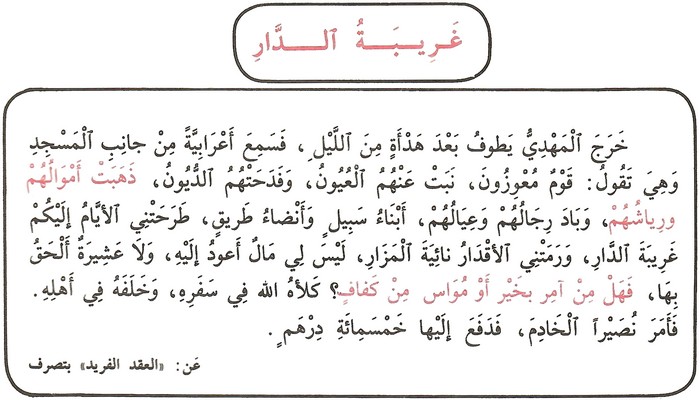 غَرِيبَةُ الدَّارِ
خَرَجَ الْمَهْدِيُّ يَطوفُ بَعْدَ هَدْأَةٍ مِنَ اللَّيْلِ، فَسَمِعَ أَعْرَابِيَّةً مِنْ جانِبِ الْمَسْجِدِ
وَهِيَ تَقُولُ: قَوْمٌ مُعْوِزُونَ، نَبَتْ عَنْهُمُ الْعُيُونُ، وَفَدَحَتْهُمُ الدُّيُونُ، ذَهَبَتْ أَمْوَالُهُمْ
ورِياشُهُمْ، وَبَادَ رِجالُهُمْ وَعِيَالُهُمْ، أَبْنَاءُ سَبِيلٍ وَأَنْضاءُ طَريقٍ، طَرَحَتْنِي الأَيَّامُ إِلَيْكُمْ
غَرِيبَةَ الدَّارِ، وَرَمَتْنِي الأَقْدَارُ نائِيَةَ الْمَزَارِ، لَيْسَ لِي مَالٌ أَعودُ إِلَيْهِ، وَلَا عَشِيرَةٌ أَلْحَقُ
بِهَا، فَهَلْ مِنْ آمِرٍ بِخَيْرٍ أَوْ مُوَاسٍ مِنْ كَفافٍ؟ كَلَأَهُ الله فِي سَفَرِهِ، وَخَلَفَهُ فِي أَهْلِهِ.
فَأَمَرَ نُصَيْراً الْخَادِمَ، فَدَفَعَ إِلَيْها خَمْسَمِائَةِ دِرْهَمٍ.
عَن: «العقد الفريد» بتصرف